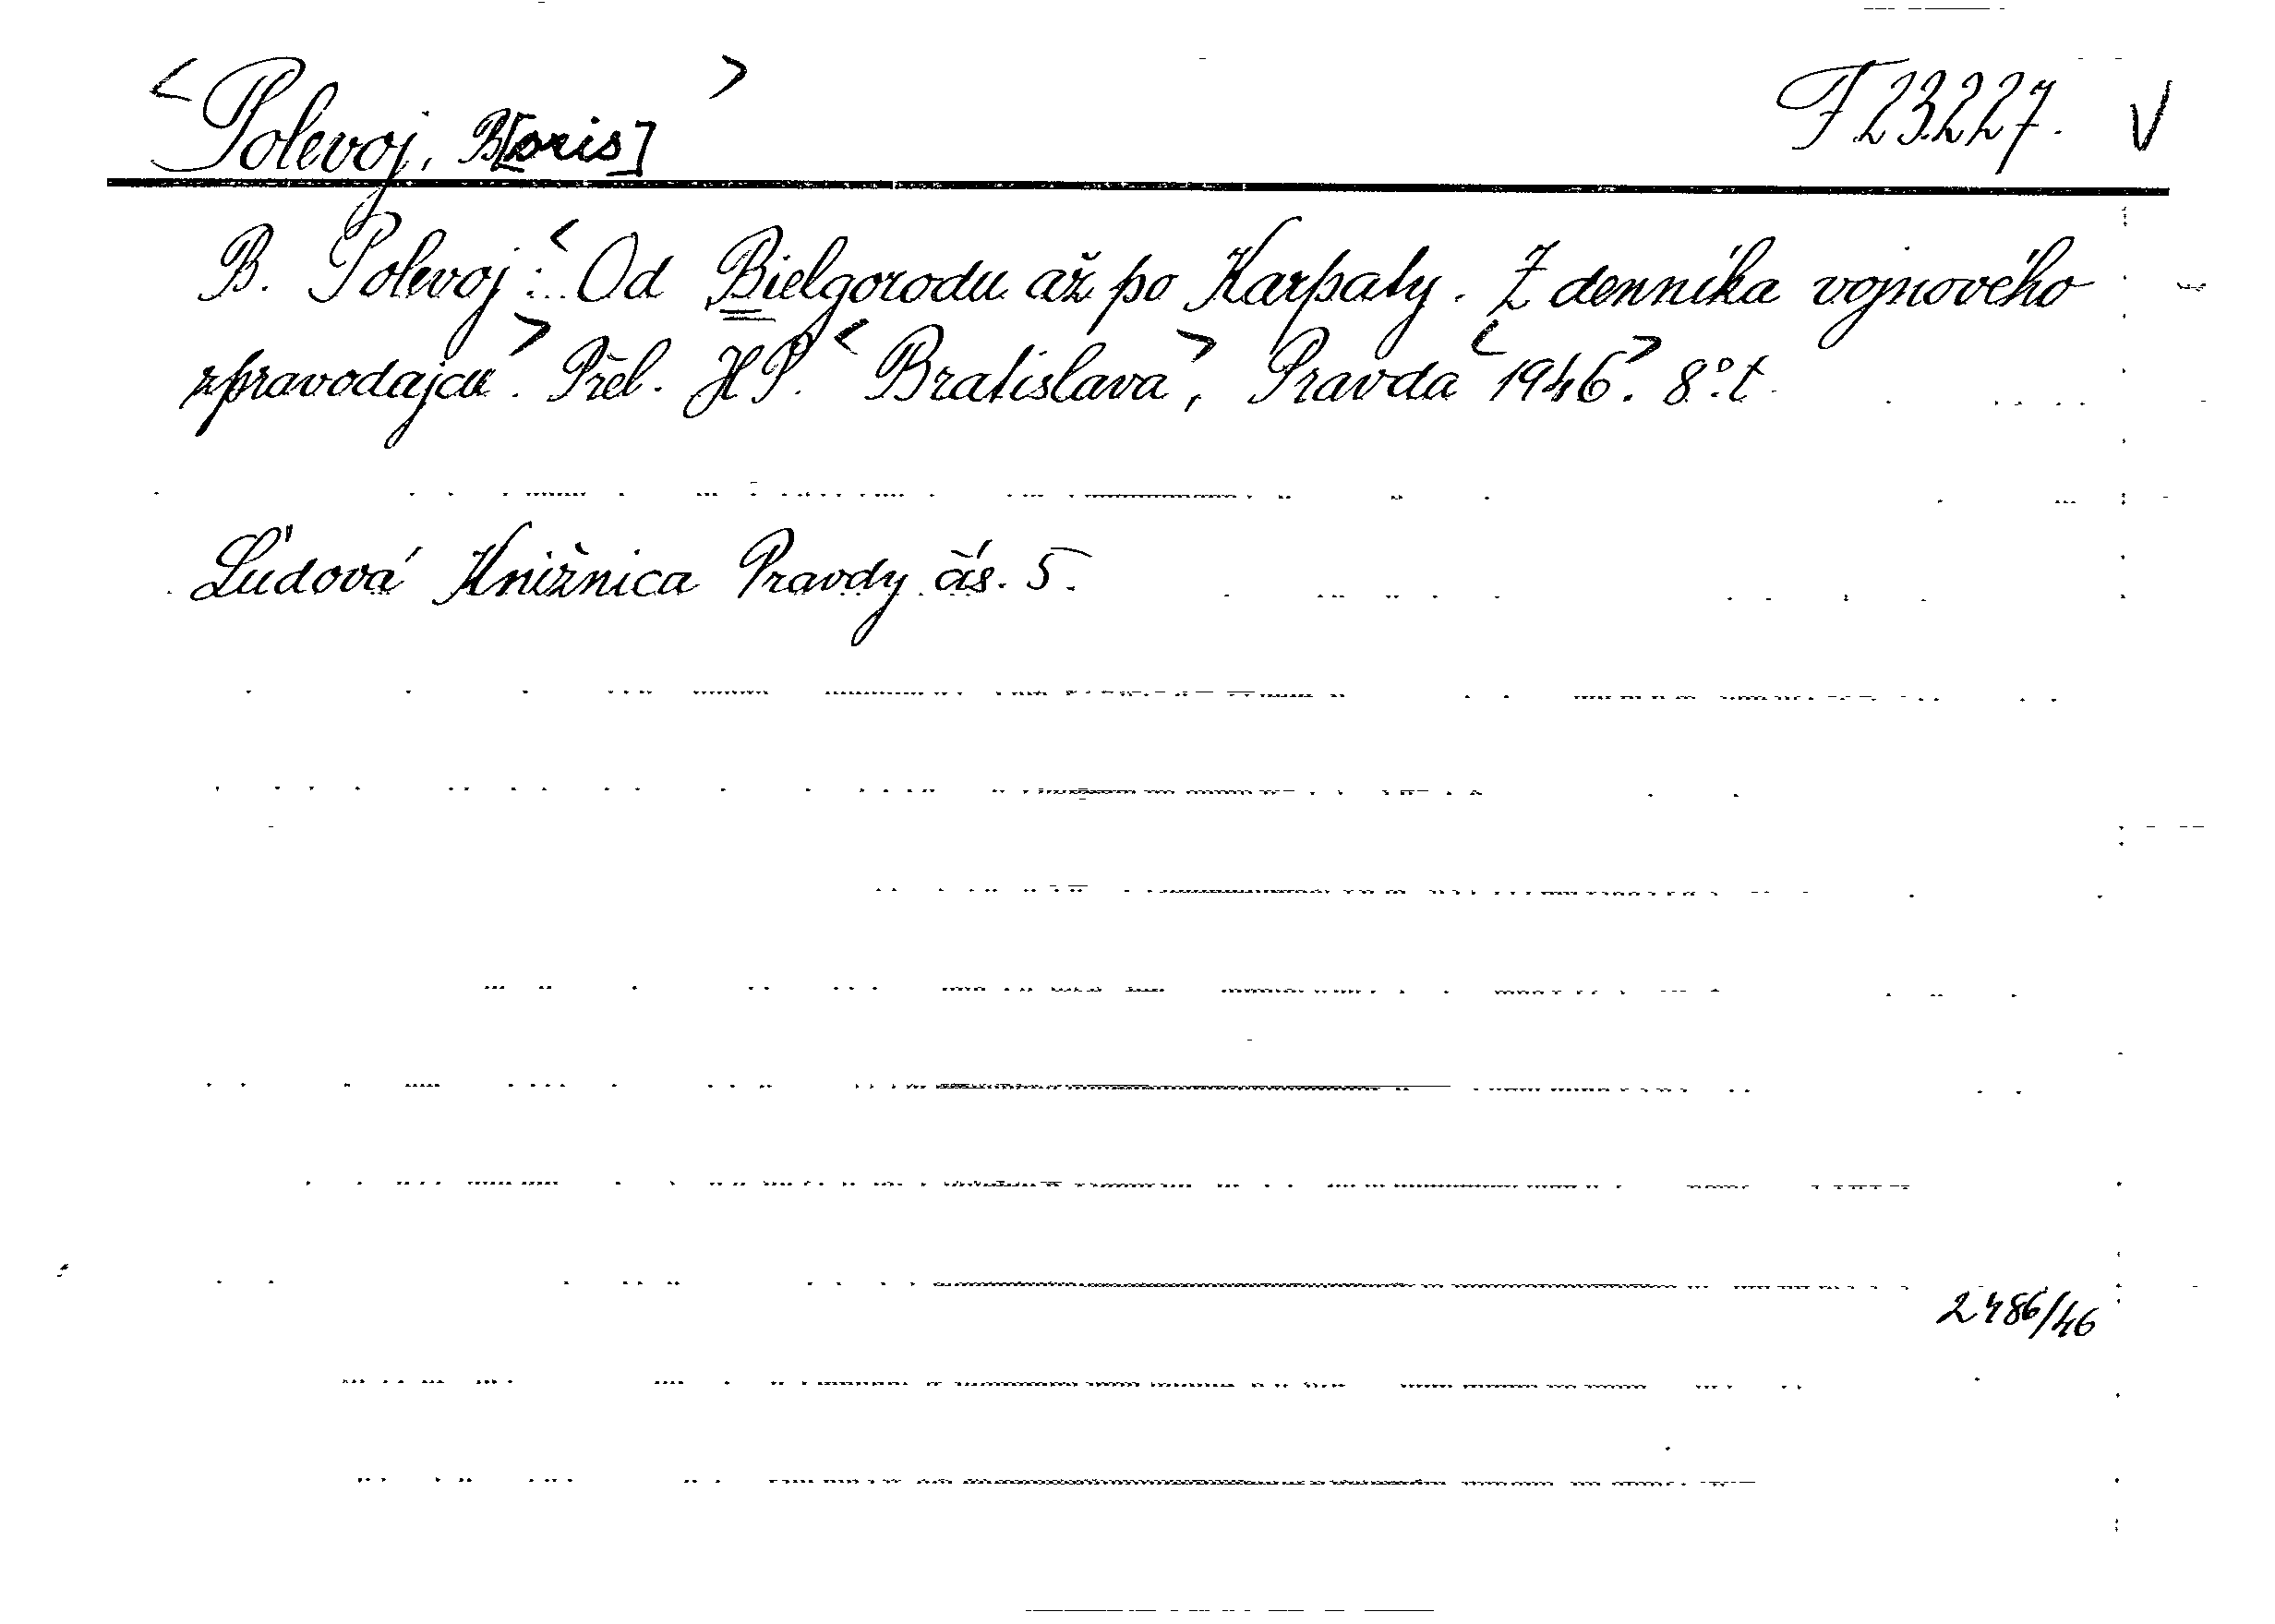 <Polevoj, B[oris]> F 23.227. V
B. Polevoj: <Od Bielgorodu až po Karpaty. Z denníka vojnového
zpravodajcu>. Přel. HP. <Bratislava>, Pravda <1946>. 8°. t.
Ľudová Knižnica Pravdy čís. 5.
2486/46